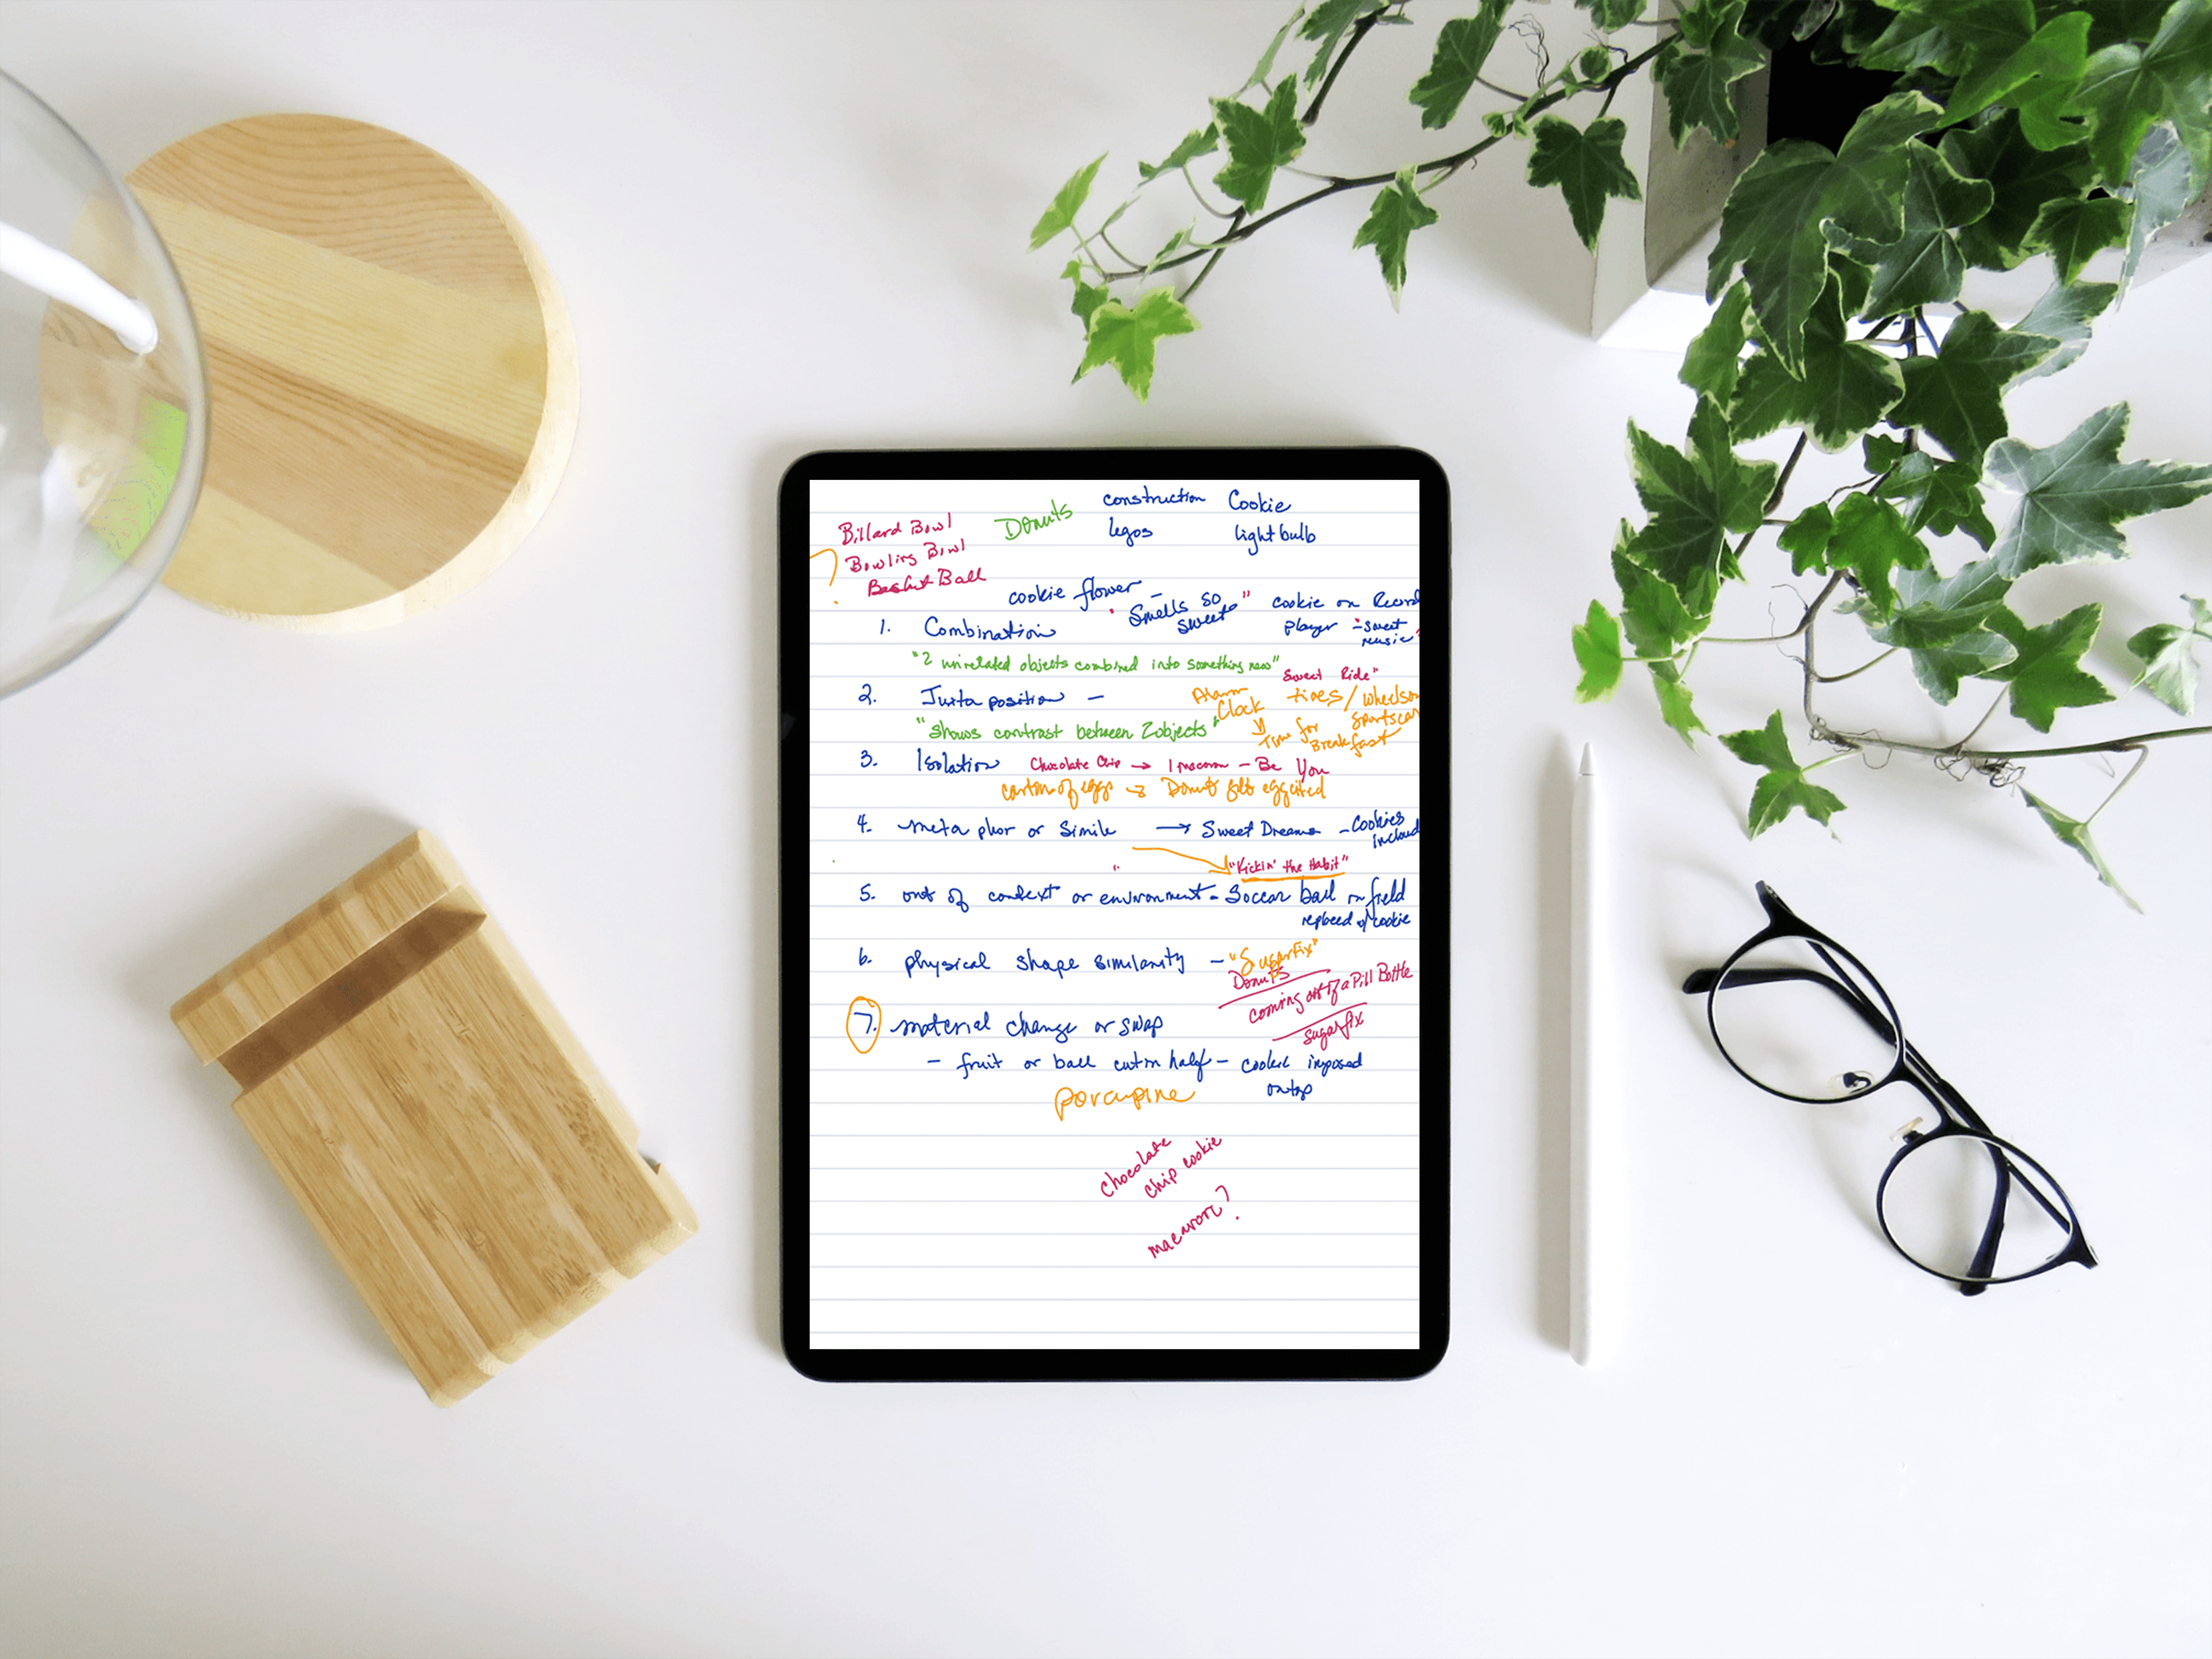 Billard Bowl
Bowling Bowl
Basket Ball
?
Donuts
construction
legos
Cookie
light bulb
cookie flower -
"Smells so sweet"
cookie on Record
player - "sweet
music"
1. Combination
"2 unrelated objects combined into something new"
"Sweet Ride"
2. Juxta position -
Alarm
Clock
tires / wheels on
sportscar
Time for
Breakfast
"Shows contrast between 2 objects"
3. Isolation Chocolate Chip → 1 macaron - Be You
carton of eggs → Donut eggcited
4. meta phor or Simile → Sweet Dreams - Cookies
includ
"Kickin' the Habit"
5. out of context or environment - Soccer ball on field
replaced w/ cookie
6. physical shape similarity - "Sugarfix"
Donuts
coming out of a Pill Bottle
sugarfix
7. material change or swap
- fruit or ball cut in half - imposed
on top
porcupine
chocolate
chip cookie
macaron?